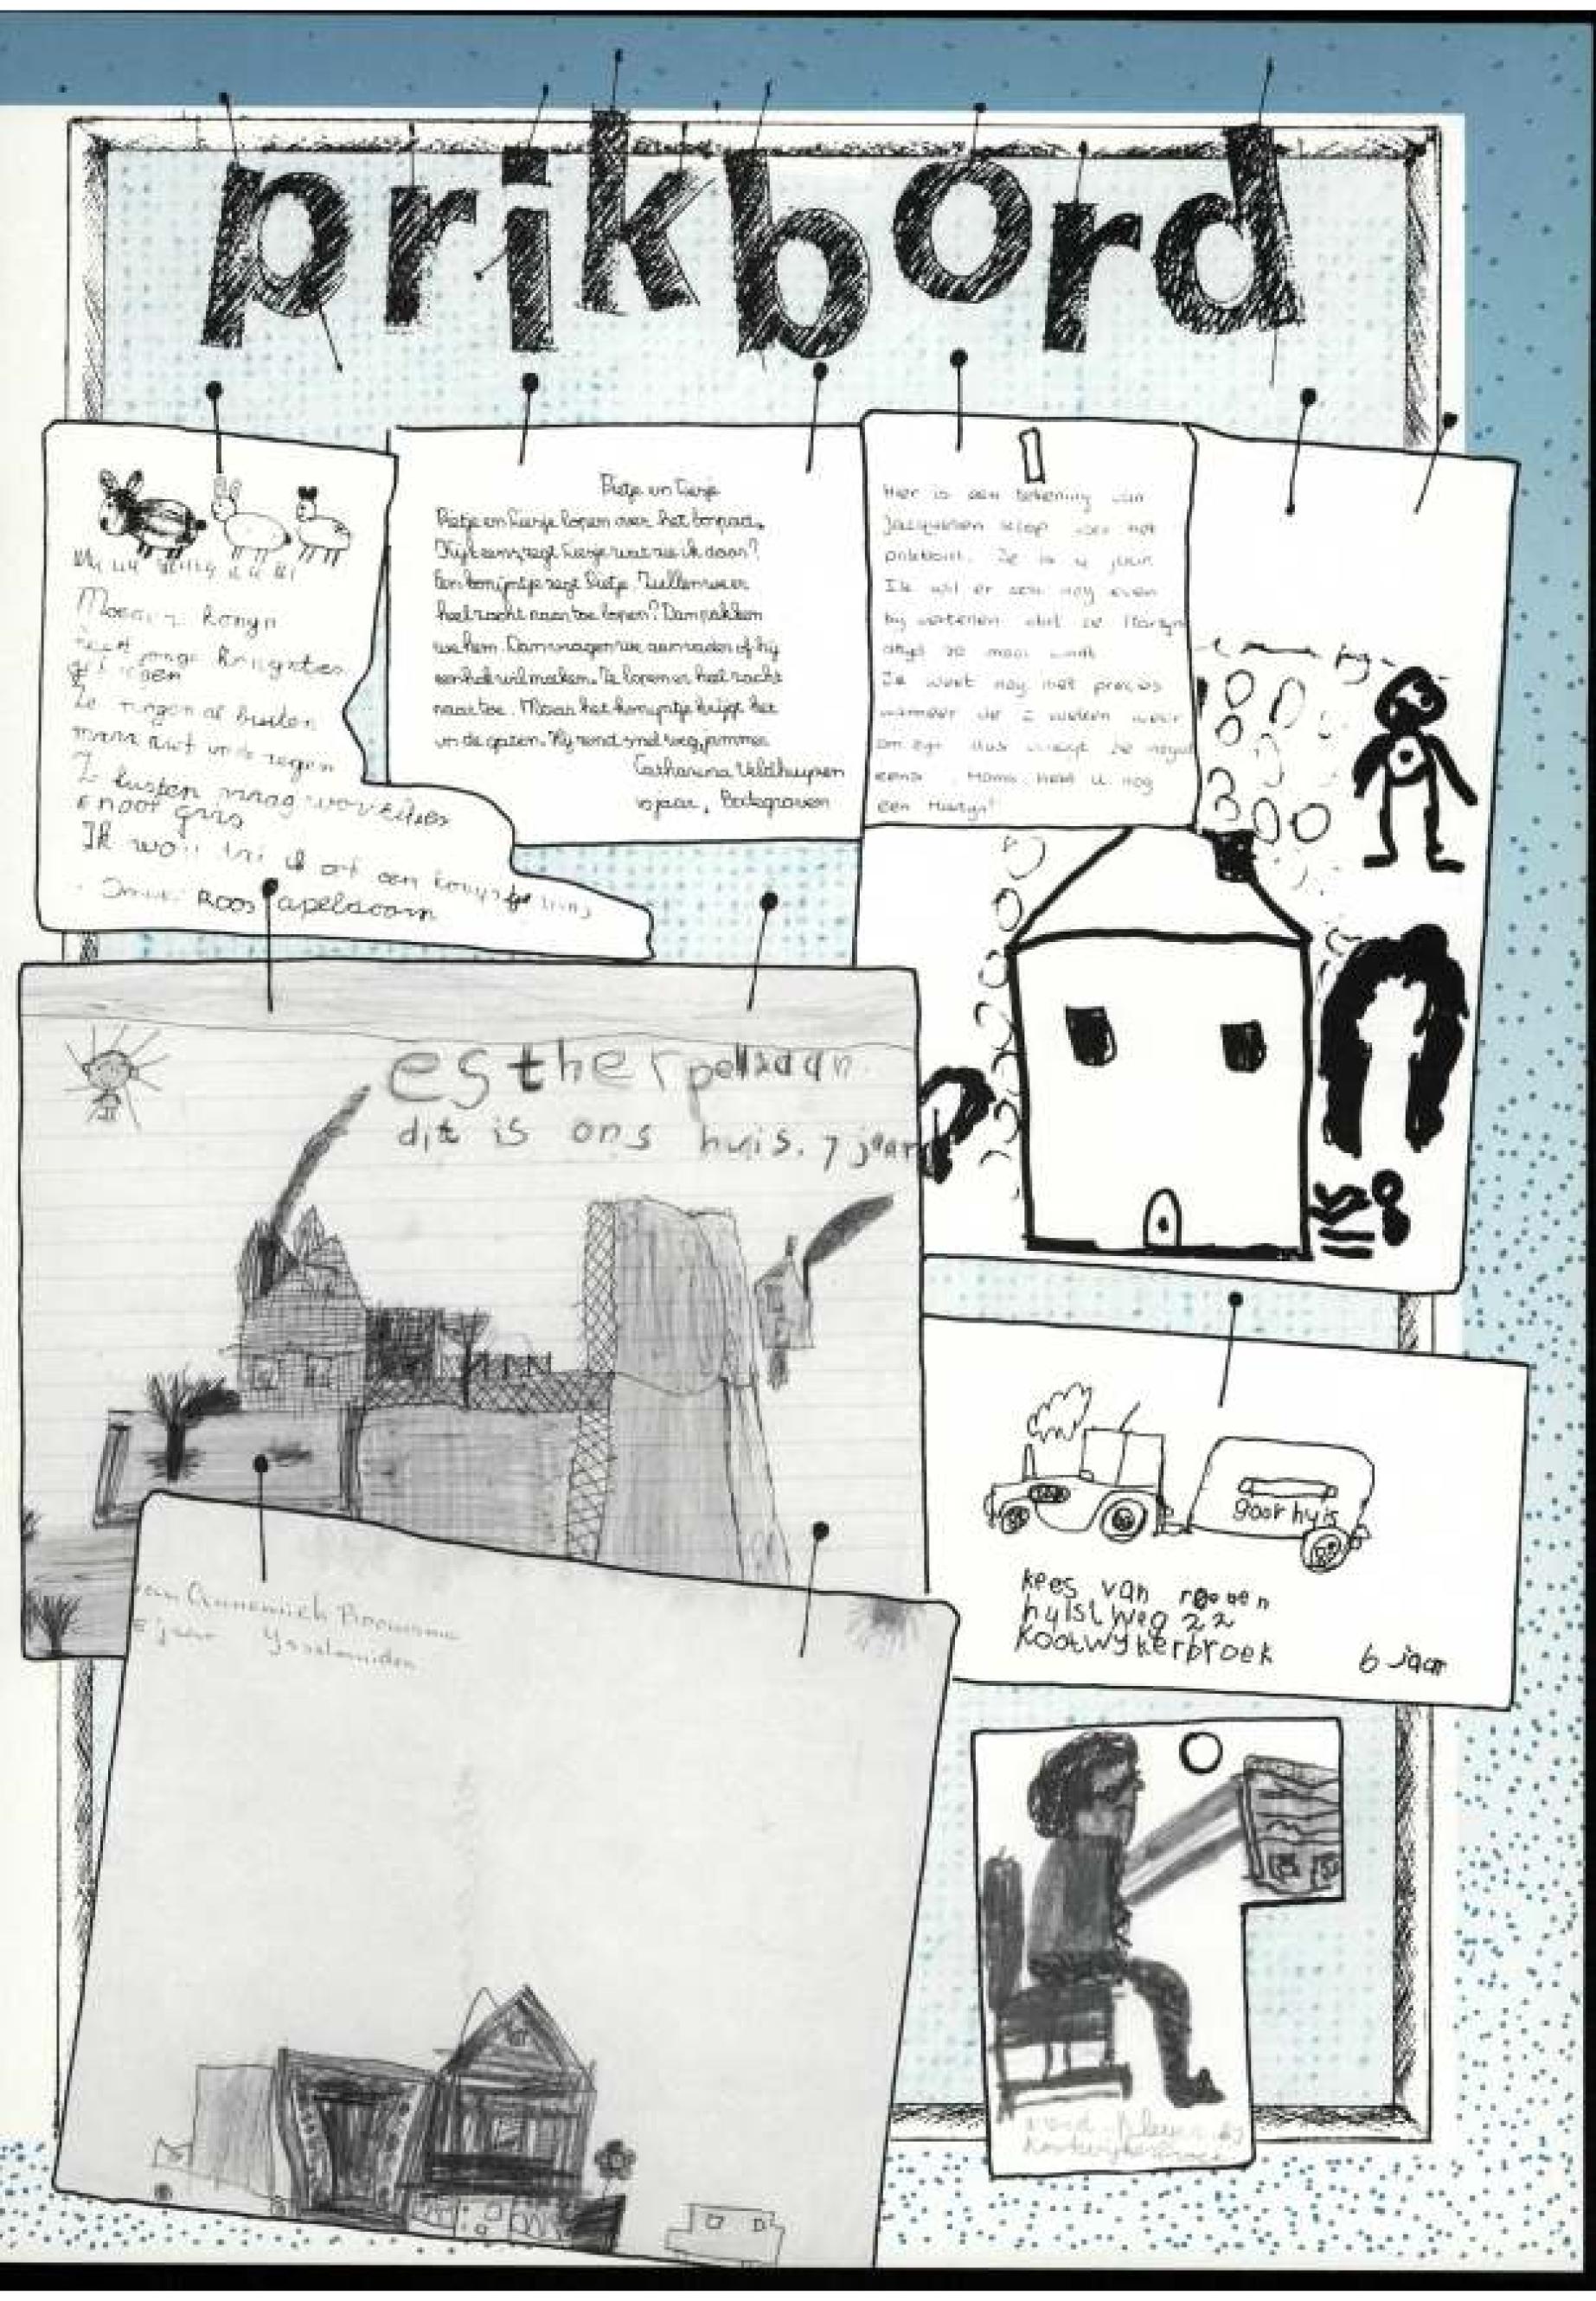 prikbord
Moeder konijn
heeft jonge konijntjes
gekregen
Ze mogen al buiten
maar niet in de regen
Ze lusten graag worteltjes
en oor gras
Ik wou dat ik ook een konijntje was
Roos apeldoorn
Pietje en Liesje
Pietje en Liesje lopen over het bospad.
Kijk eens, zegt Liesje wat zie ik daar?
Een konijntje zegt Pietje. Zullen we er
heel zacht naar toe lopen? Dan pakken
we hem. Dan vragen we aan vader of hij
een hok wil maken. Ze lopen er heel zacht
naar toe. Maar het konijntje krijgt het
in de gaten. Hij rend snel weg, jammer
Catharina Veldhuyzen
10 jaar, Bodegraven
Hier is een tekening van
Jacquelien voor het
prikbord. Ze is 4 jaar.
Ik wil er nog even
bij vertellen dat ze Martijn
altijd zo mooi vindt
Ze weet nog niet precies
wanneer de 2 weken weer
om zijn dus vraagt ze nogal
eens: Mama, heeft u nog
een Martijn?
esther pellaan
dit is ons huis. 7 jaar
goorhuis
kees van rooven
hulstweg 22
Kootwykerbroek
6 jaar
van Annemiek
jaar Ysselmuiden